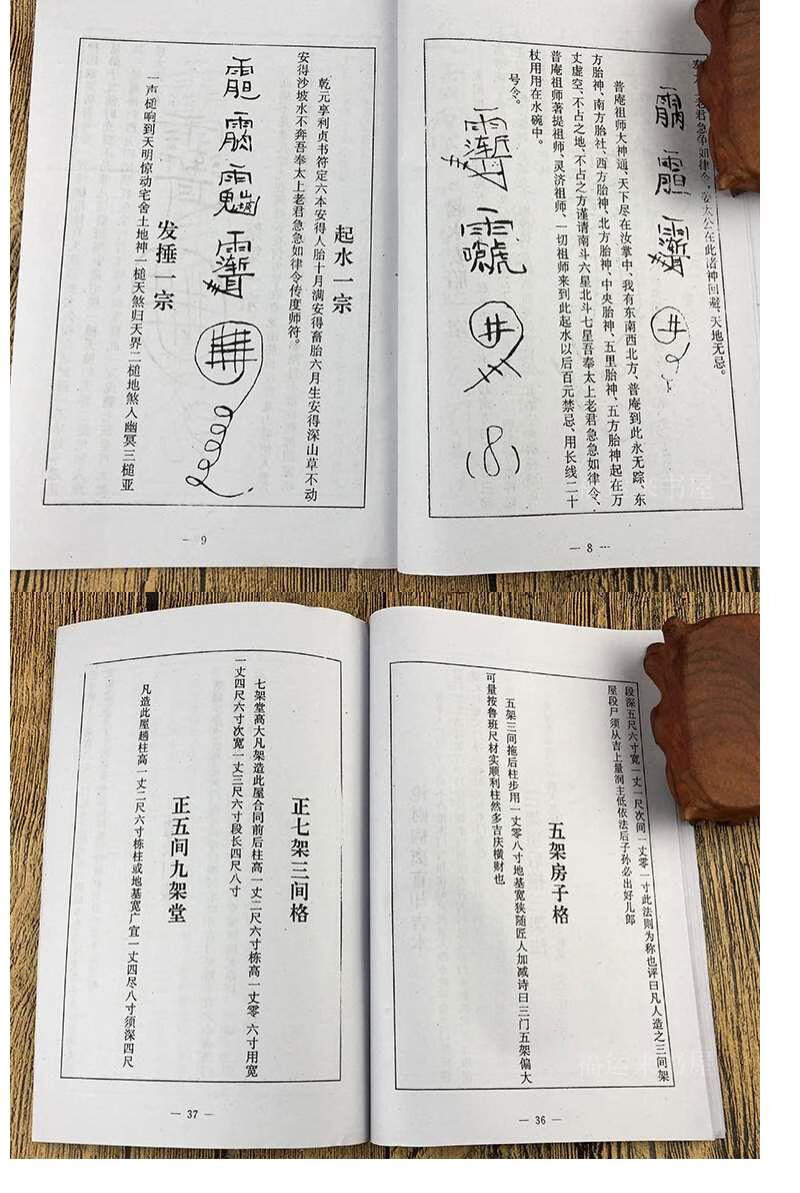 老君急急如律令、姜太公在此诸神回避、天地无忌。
普庵祖师大神通、天下尽在汝掌中、我有东南西北方、普庵到此永无踪、东
方胎神、南方胎社、西方胎神、北方胎神、中央胎神、五里胎神、五方胎神起在万
丈虚空、不占之地、不占之方谨请南斗六星北斗七星吾奉太上老君急急如律令、
普庵祖师菩提祖师、灵济祖师、一切祖师来到此起水以后百元禁忌、用长线二十
杖用用在水碗中。
号令。
— 8 —
起水一宗
乾元享利贞书符定六本安得人胎十月满安得畜胎六月生安得深山草不动
安得沙坡水不奔吾奉太上老君急急如律令传度师符。
发捶一宗
一声槌响到天明惊动宅舍土地神一槌天煞归天界二槌地煞人幽冥三槌亚
— 9
段深五尺六寸宽一丈一尺次间一丈零一寸此法则为称也评曰凡人造之三间架
屋段尸须从吉上量涧主低依法后子孙必出好儿郎
五架房子格
五架三间拖后柱步用一丈零八寸地基宽狭随匠人加减诗曰三门五架偏大
可量按鲁班尺材实顺利柱然多吉庆横财也
— 36 —
正七架三间格
七架堂高大凡架造此屋合同前后柱高一丈二尺六寸栋高一丈零六寸用宽
一丈四尺六寸次宽一丈三尺六寸段长四尺八寸
正五间九架堂
凡造此屋趟柱高一丈二尺六寸栋柱或地基宽广宜一丈四尽八寸须深四尺
— 37 —